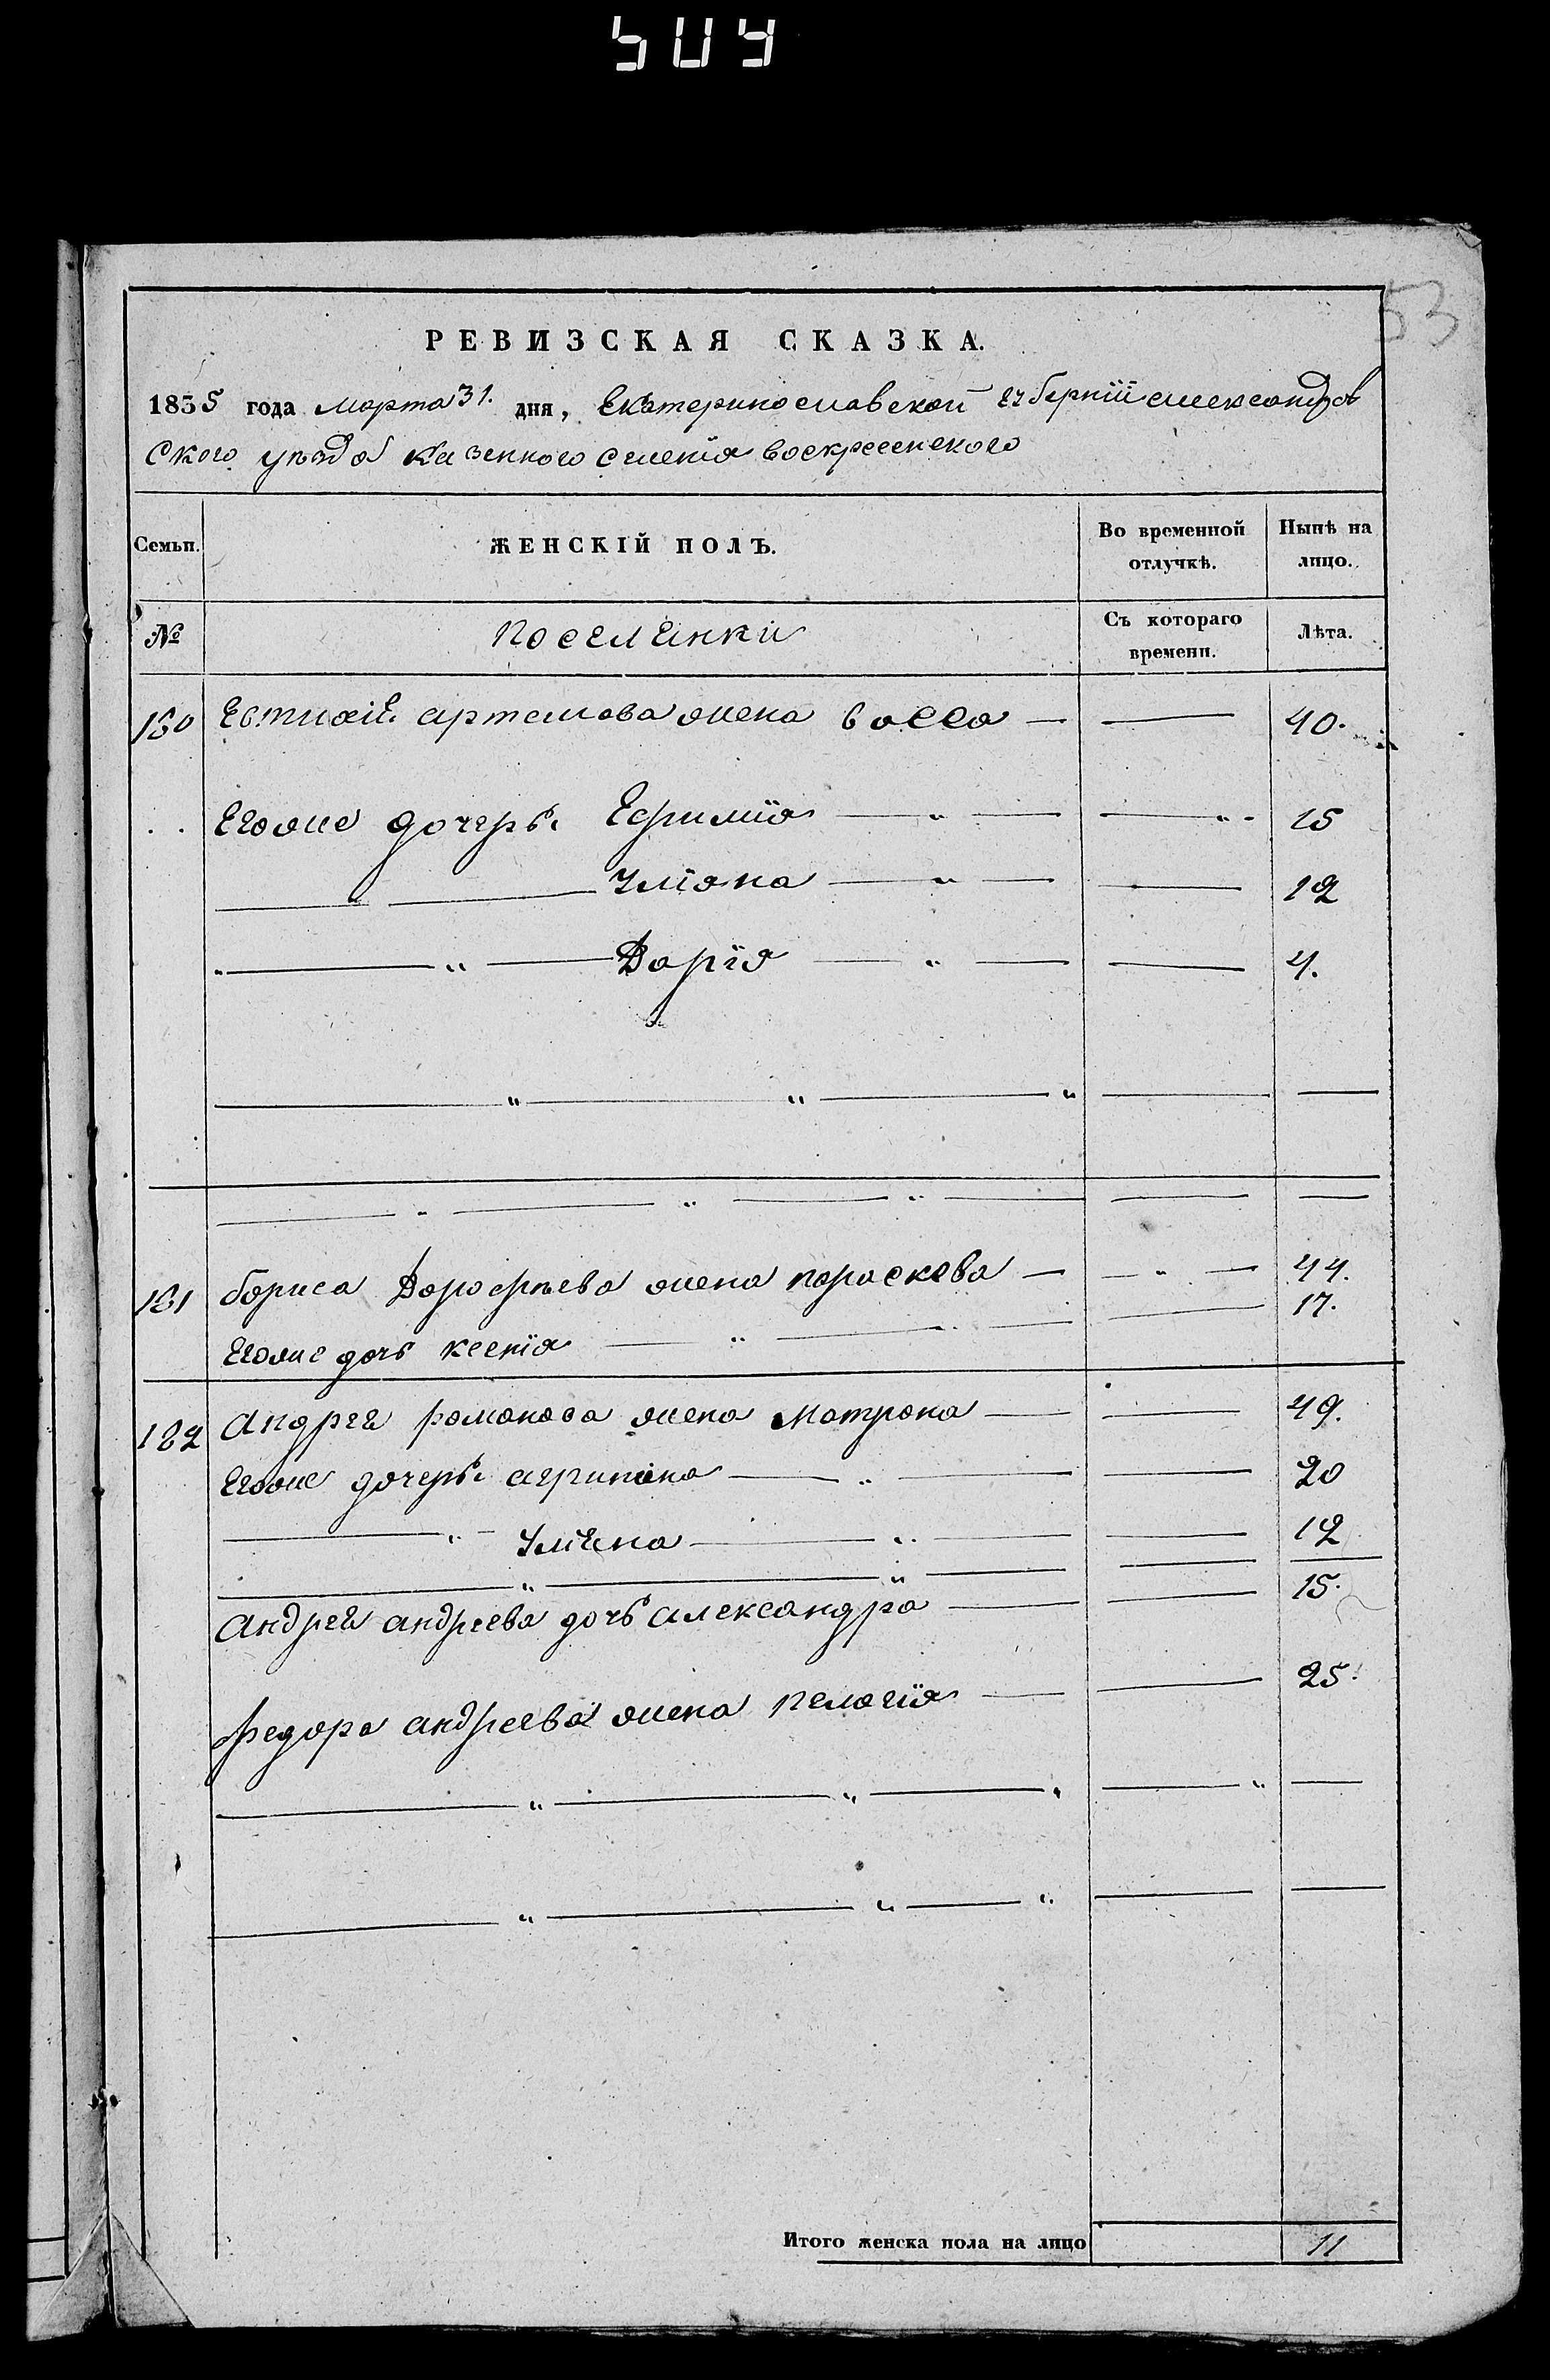 53
РЕВИЗСКАЯ СКАЗКА.
1835 года марта 31. дня, Екатеринославской губернїи александров
ского уезда казенного селенїя воскресенского
Семьи. ЖЕНСКІЙ ПОЛЪ. Во временной отлучкѣ. Нынѣ на лицо.
№ поселенки Съ котораго времени. Лѣта.
180 Евтихїя артемова жена васса — — 40.
Егоже дочери Ефимїя — " — — " - 15
Улїяна — " — — 12
" — " — Дарїя — " — — 4.
181 бориса Дорофѣева жена параскева — — " — 44.
Егоже дочь ксенїя — " — 17.
182 андрея романова жена матрона — — 49.
Егоже дочери агрипина — " — — 20
— " — Улїяна — " — — 12
андрея андреева дочь александра — — 15.
федора андреева жена пелагїя — — 25.
Итого женска пола на лицо 11